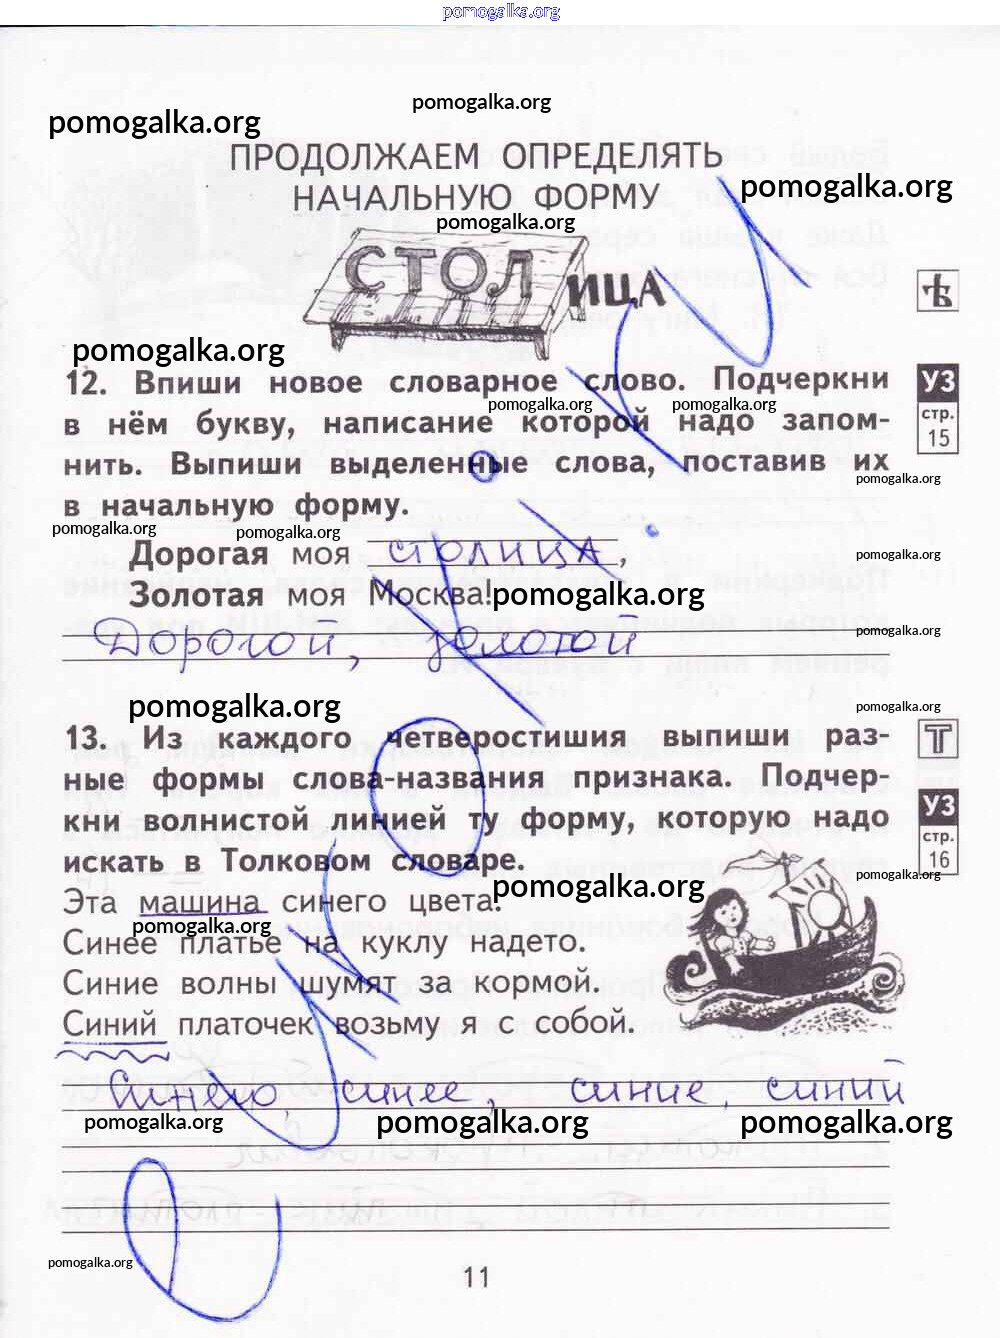 pomogalka.org
pomogalka.org
pomogalka.org
ПРОДОЛЖАЕМ ОПРЕДЕЛЯТЬ
pomogalka.org
НАЧАЛЬНУЮ ФОРМУ
pomogalka.org
СТОЛИЦА
pomogalka.org
12. Впиши новое словарное слово. Подчеркни
УЗ
pomogalka.org pomogalka.org
стр.
в нём букву, написание которой надо запом-
15
нить. Выпиши выделенные слова, поставив их
pomogalka.org
в начальную форму.
pomogalka.org pomogalka.org
Дорогая моя столица,
pomogalka.org
Золотая моя Москва!
pomogalka.org
pomogalka.org
Дорогой, золотой
pomogalka.org
pomogalka.org
13. Из каждого четверостишия выпиши раз-
Т
ные формы слова-названия признака. Подчер-
УЗ
кни волнистой линией ту форму, которую надо
стр.
искать в Толковом словаре.
16
pomogalka.org
pomogalka.org
Эта машина синего цвета.
pomogalka.org
Синее платье на куклу надето.
Синие волны шумят за кормой.
Синий платочек возьму я с собой.
Синего, синее, синие, синий
pomogalka.org pomogalka.org pomogalka.org
pomogalka.org
11